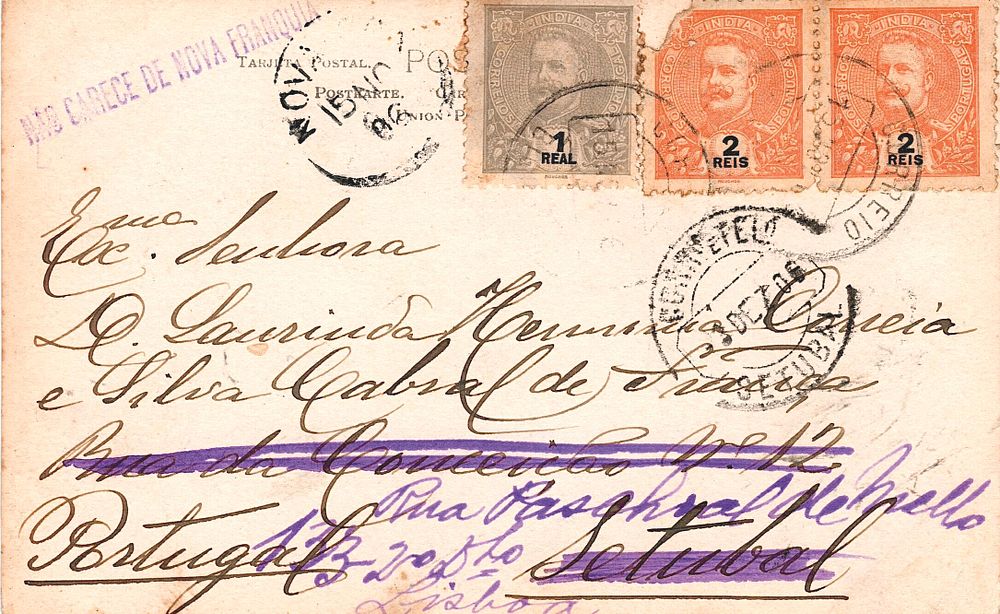 NÃO CARECE DE NOVA FRANQUIA
TARJETA POSTAL.
POSTKARTE.
UNION P
NOVA
15 NO
06
INDIA
CORREIOS
PORTUGAL
1
REAL
MOUCHON
INDIA
CORREIOS
PORTUGAL
2
REIS
MOUCHON
INDIA
CORREIOS
PORTUGAL
2
REIS
CORREIO
CORRº E TELº
3 DEZ 06
SETUBAL
Exma. Senhora
D. Laurinda Herminia Correia
e Silva Cabral de França
Rua da Conceicão Nº. 12
Rua Paschoal de Mello
Portugal
133-2º Dto
Setubal
Lisboa